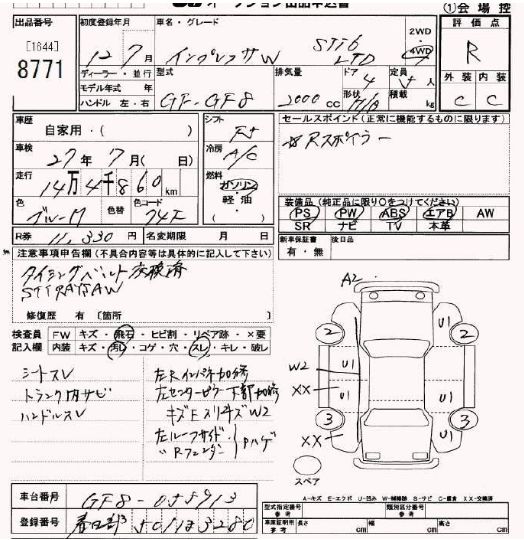 ①会場控
出品番号 初度登録年月 車名・グレード 2WD 評価点
[1644] 12年7月 インプレッサW STi6 LTD 4WD R
8771
ディーラー・並行 型式 排気量 ドア 定員 外装 内装
モデル年式 年 4 5人
ハンドル 左・右 GF-GF8 2000cc 形状 積載 kg C C
車歴 自家用・( ) シフト F5 セールスポイント(正常に機能するものに限ります)
車検 27年7月(日) 冷房 A/C ☆Rスポイラー
走行 14万4千860km 燃料 ガソリン・軽油・( )
色 ブルーM 色替 カラーコード 74F 装備品(純正品に限り○をつけてください)
PS PW ABS エアB AW
SR ナビ TV 本革
R券 11,330円 名変期限 月 日 新車保証書 有・無 後日品
注意事項申告欄(不具合内容等は具体的に記入して下さい)
タイミングベルト交換済
修復歴 有〔箇所 〕
検査員記入欄 FW キズ・飛石・ヒビ割・リペア跡・×要
内装 キズ・汚レ・コゲ・穴・スレ・キレ・破レ
シートスレ 左Rインパネ加修
トランク内サビ 左センターピラー下部加修
ハンドルスレ キズEスリキズW2
左ルーフサイド
〃Rフェンダー Pハゲ
A2
2 U1 2
W2 U1
XX U1
3 U1 3
XX
スペア
A-キズ E-エクボ U-凹み W-補修跡 S-サビ C-腐食 XX-交換済
車台番号 GF8-055913 型式指定番号 参考 類別区分番号 参考
登録番号 春日部 501は3280 車庫証明用 参考 長さ cm 幅 cm 高さ cm